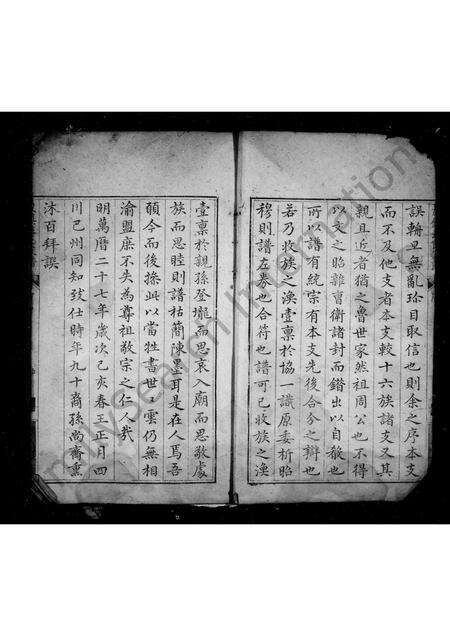 誤輪卫無亂珍目取信也則余之序本支
而不及他支者本支較十六族諸支又其
親且近者猶之魯世家然祖周公也不得
以支之昭雜曹衛諸封而錯出以自散也
所以譜有統宗有本支先後合分之辨也
若乃收族之渙壹禀於協一識原委析昭
穆則譜左券也合符也譜可已收族之渙
壹禀於親孫登壠而思哀入廟而思敬處
族而思睦則譜枯簡陳墨耳是在人焉吾
願今而後操此以當牲書世〻雲仍無相
渝盟庶不失為尊祖敬宗之仁人哉
明萬曆二十七年歲次己亥春王正月四
川巴州同知致仕時年九十裔孫尚齋熏
沐百拜譔